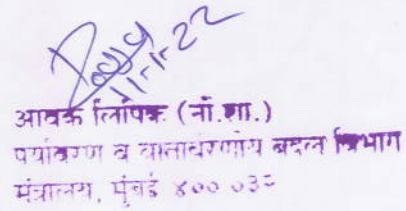 11-1-22
आवक लिपिक (नों.शा.)
पर्यावरण व वातावरणीय बदल विभाग
मंत्रालय, मुंबई ४०० ०३२